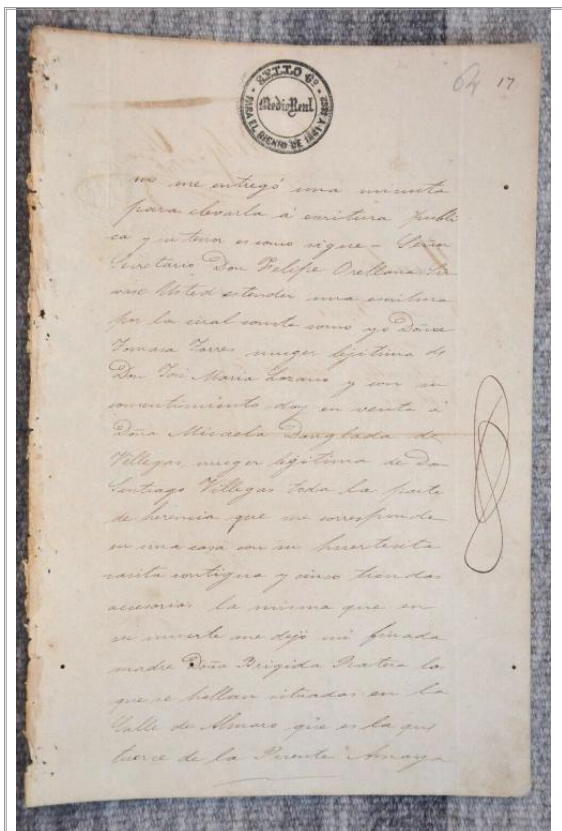 64 17
SELLO 6º
Medio Real
PARA EL BIENIO DE 1841 Y 1842
me entregó una minuta
para elevarla á escritura publi
ca y su tenor es como sigue – Señor
Secretario Don Felipe Orellana Sir
vase Usted estender una escritura
por la cual conste como yo Doña
Tomasa Torres muger lejitima de
Don José Maria Lozano y con su
consentimiento doy en venta á
Doña Micaela Dougbada de
Villegas muger lejitima de Don
Santiago Villegas toda la parte
de herencia que me corresponde
en una casa con su huertesita
casita contigua y cinco tiendas
accesorias la misma que en
su muerte me dejó mi finada
madre Doña Brigida la
que se hallan situadas en la
Calle de que es la que
tuerce de la Puente Amaya